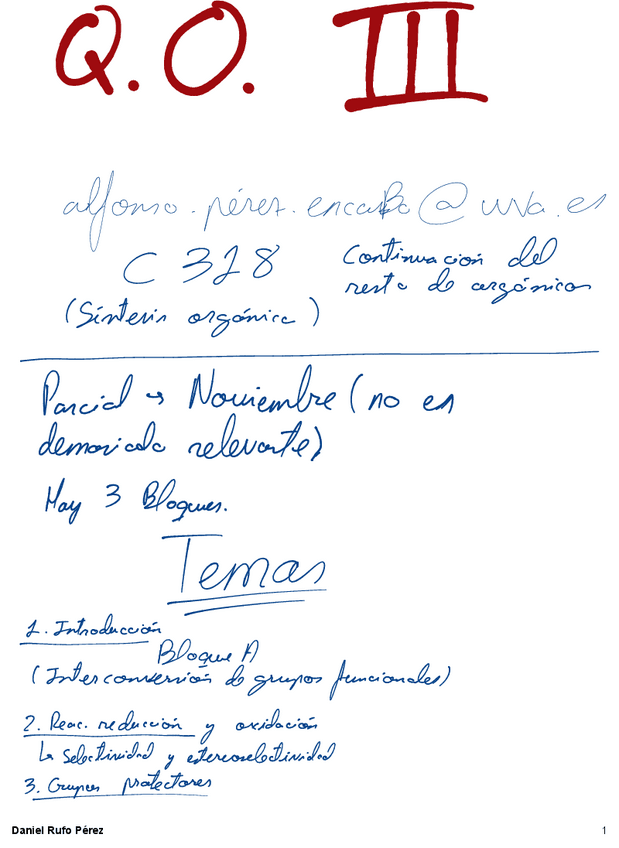 Q.O. III
alfonso.pérez.encabo@uva.es
C 328
(Síntesis orgánica)
Continuación del
resto de orgánicas
Parcial → Noviembre (no es
demasiado relevante)
Hay 3 Bloques.
Temas
1. Introducción
Bloque A
(Interconversión de grupos funcionales)
2. Reac. reducción y oxidación
↳ Selectividad y estereoselectividad
3. Grupos protectores
Daniel Rufo Pérez
1